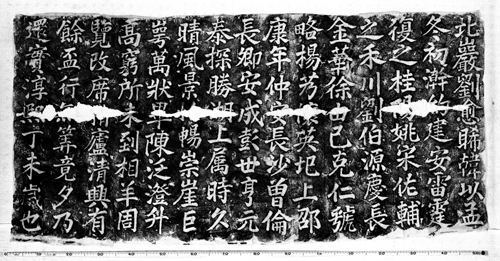 北巖劉愈睎韓以孟
冬初澣建安雷霆
復之桂姚宋佐輔
之禾川劉伯源慶長
金華徐田己克仁虢
略楊芳懷英圯上邵
康年仲安長沙曾倫
長卿安成彭世亨元
泰探勝湖上屬時久
晴風景和暢崇崖巨
崿萬狀畢陳泛澄升
高窮所未到相羊周
覽改席僧廬清興有
餘盃行無筭竟夕乃
還實淳熙丁未歲也